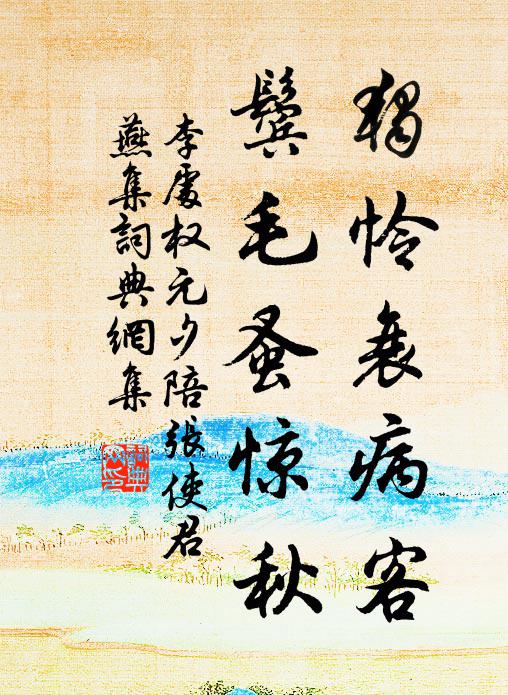 獨怜衰病客
鬢毛蚤惊秋
李處权元夕陪張使君
燕集詞典網集